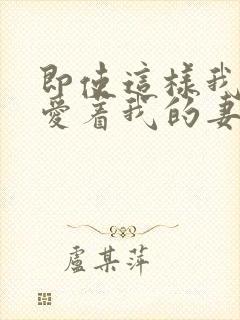 即使這樣我
愛着我的妻
盧某萍